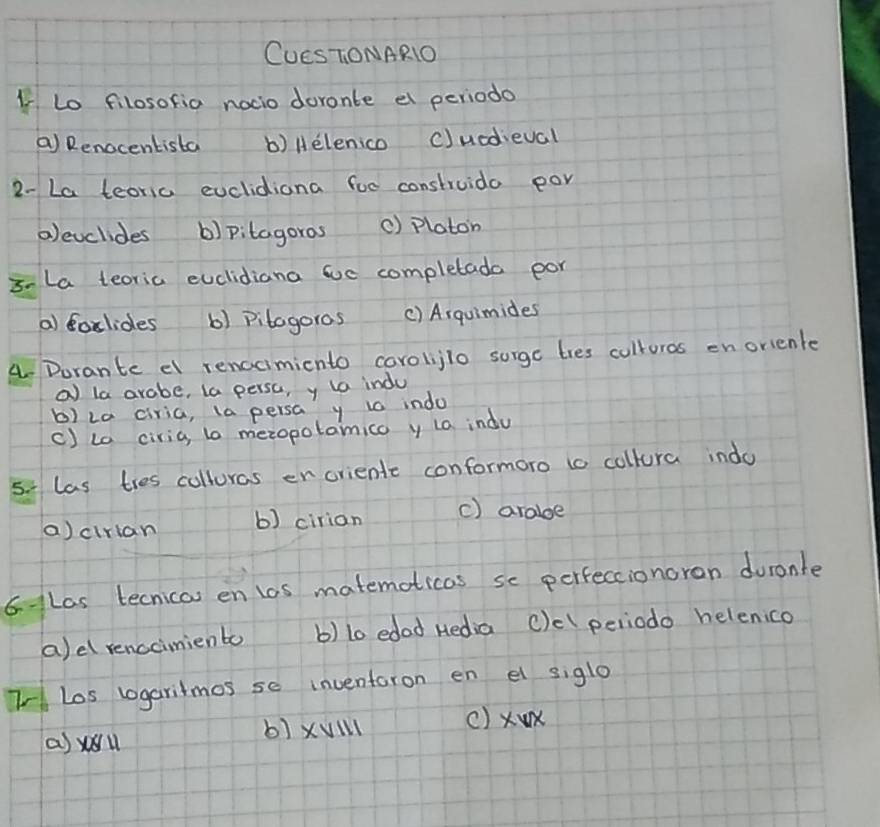 CUESTIONARIO
1- La filosofia nacio durante el periodo
a) Renacentista b) Hélenico c) Medieval
2- La teoria euclidiana fue construida por
a) euclides b) Pitagoras c) Platon
3- La teoria euclidiana fue completada por
a) Euclides b) Pitagoras c) Arquimides
4- Durante el renacimiento carolijlo surge tres culturas en oriente
a) la arabe, la persa, y la indu
b) La ciria, la persa y la indu
c) La ciria, la mezopotamica y la indu
5- Las tres culturas en oriente conformaro la coltura indu
a) cirian b) cirian c) arabe
6- Las tecnicas en las matematicas se perfeccionaron durante
a) el renacimiento b) la edad Media c) el periodo helenico
7- Los logaritmos se inventaron en el siglo
a) b) XVIII c)